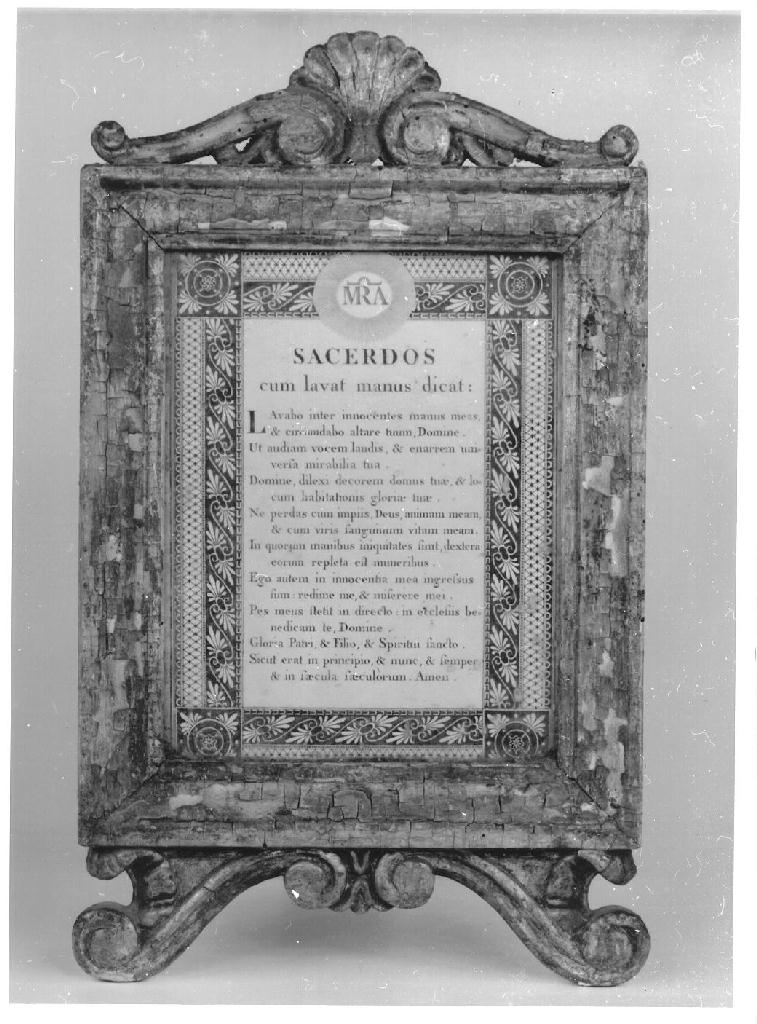 MRA
SACERDOS
cum lavat manus dicat:
LAvabo inter innocentes manus meas,
& circumdabo altare tuum, Domine.
Ut audiam vocem laudis, & enarrem uni-
verſa mirabilia tua.
Domine, dilexi decorem domus tuæ, & lo-
cum habitationis gloriæ tuæ.
Ne perdas cum impiis, Deus, animam meam,
& cum viris ſanguinum vitam meam.
In quorum manibus iniquitates ſunt, dextera
eorum repleta eſt muneribus.
Ego autem in innocentia mea ingreſsus
ſum: redime me, & miſerere mei.
Pes meus ſtetit in directo: in eccleſiis be-
nedicam te, Domine.
Gloria Patri, & Filio, & Spiritui ſancto.
Sicut erat in principio, & nunc, & ſemper,
& in ſæcula ſæculorum. Amen.